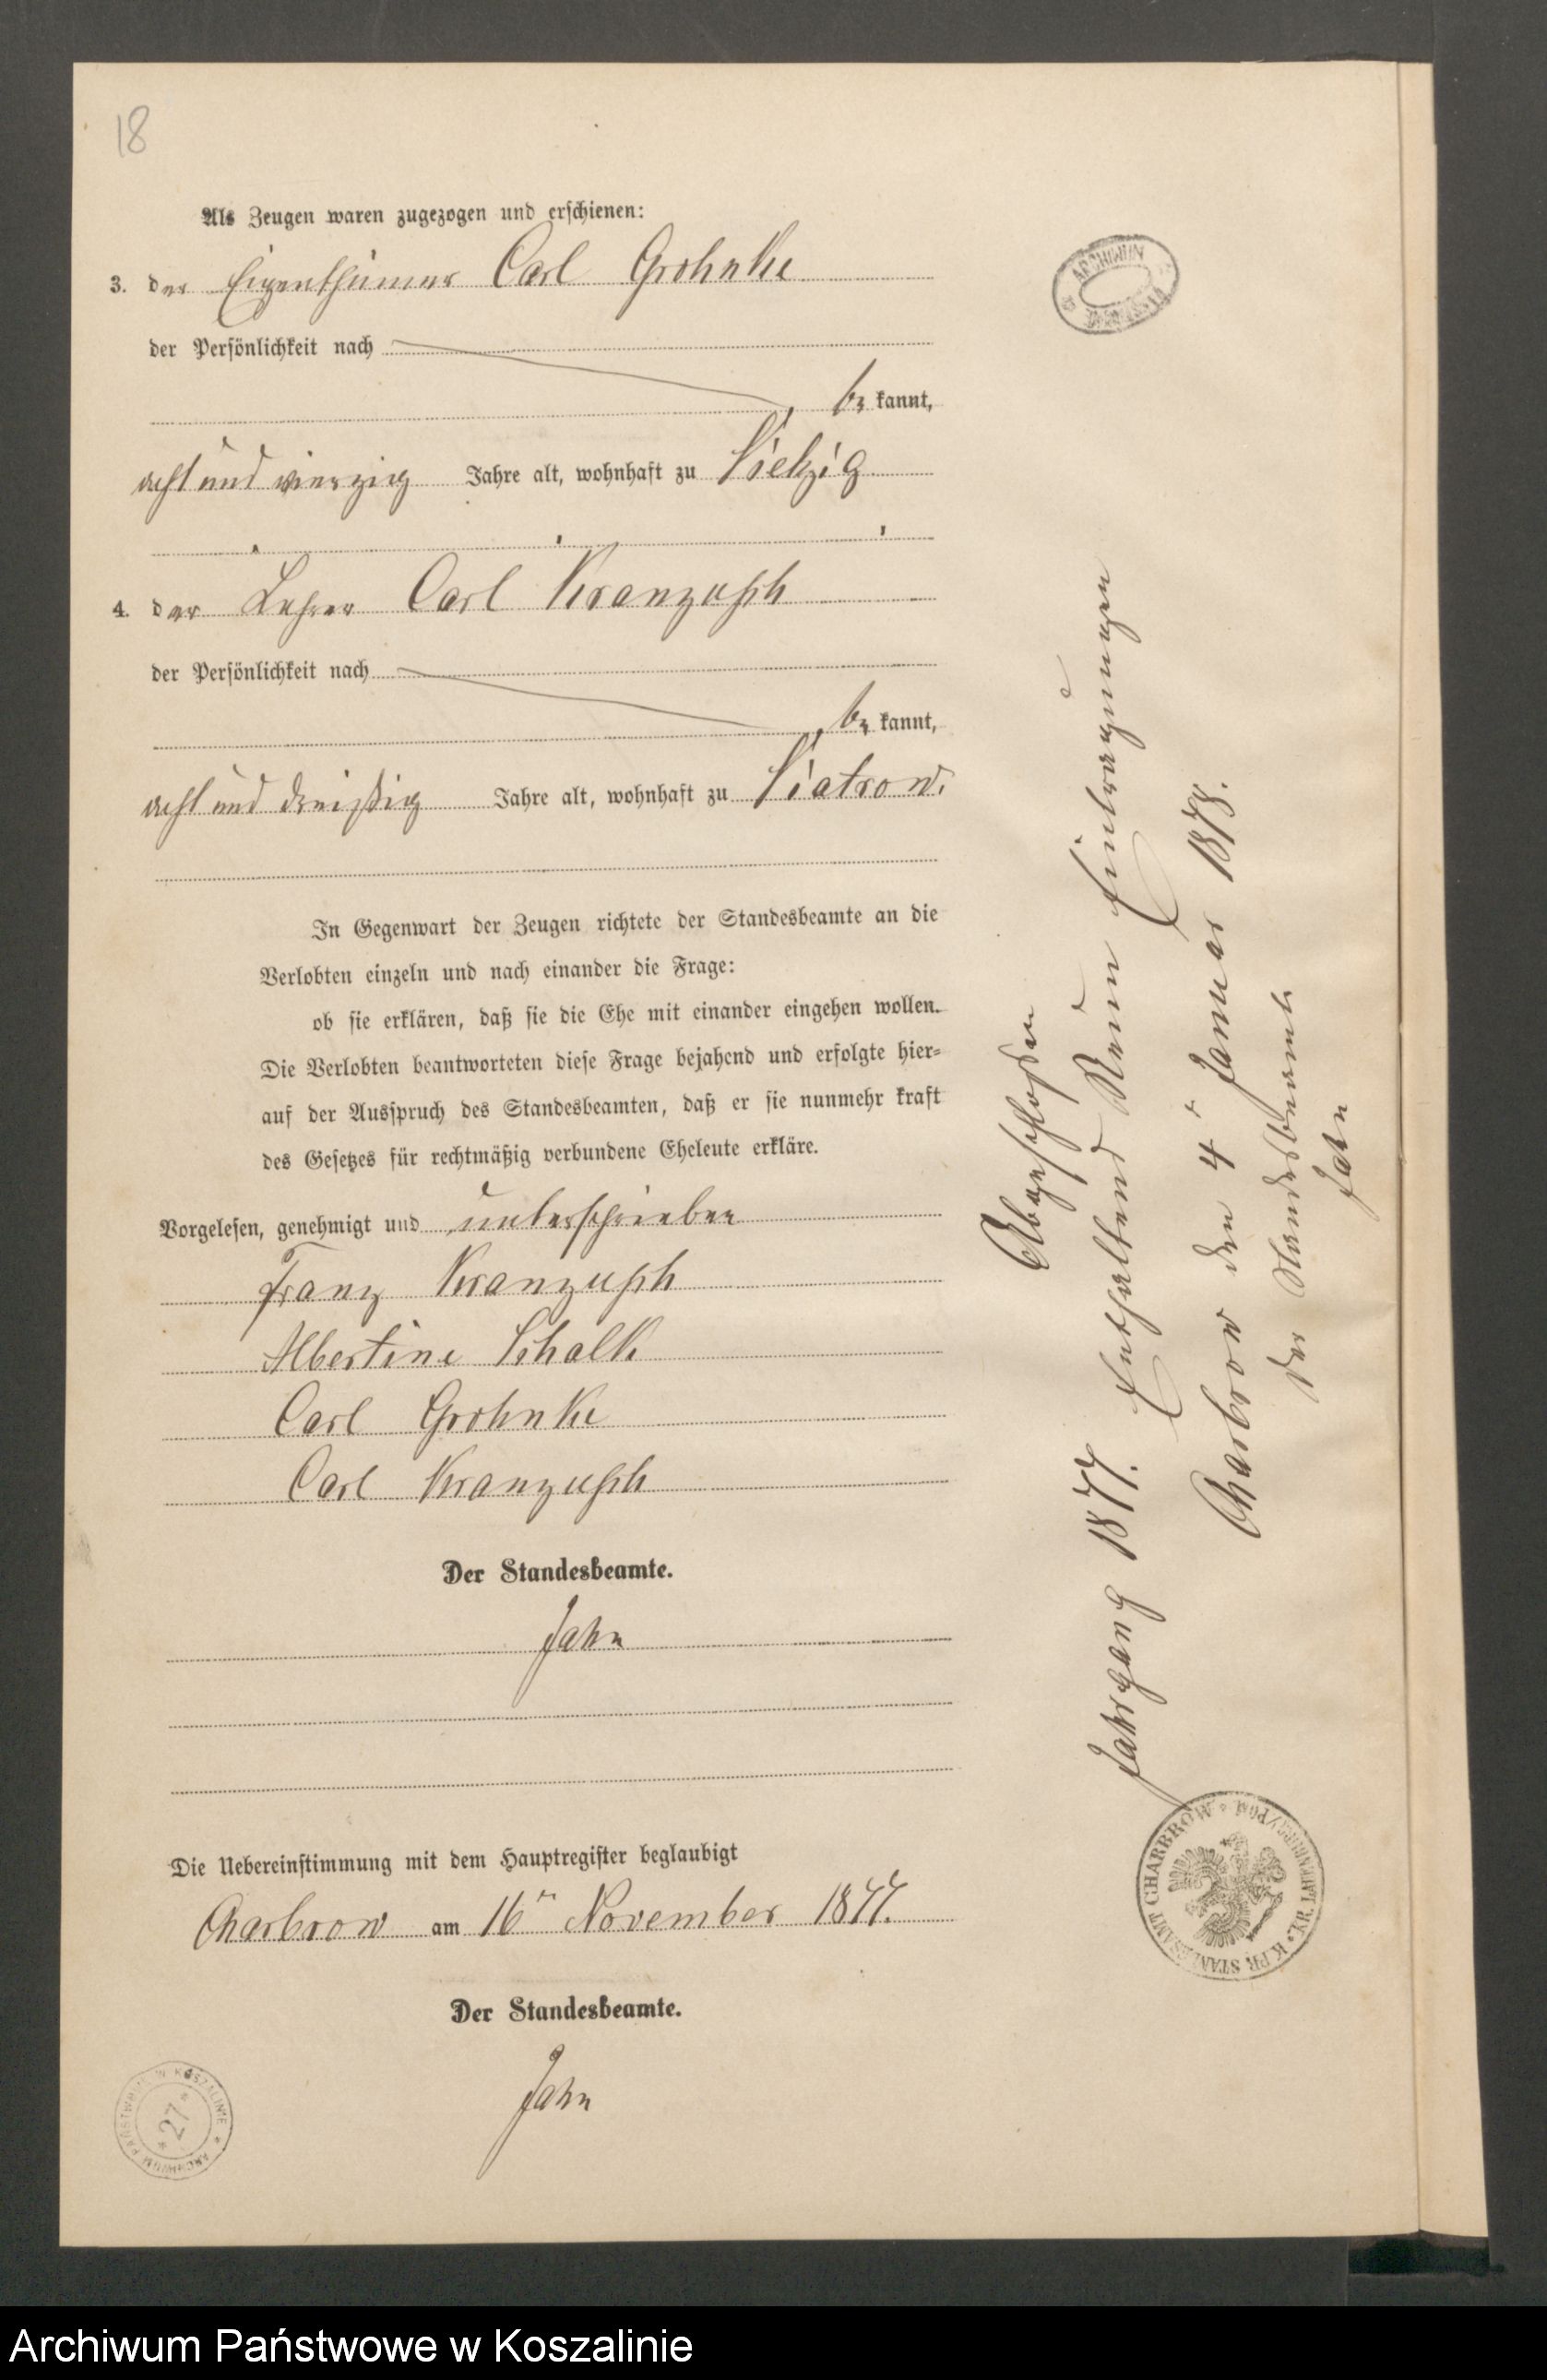 18
Als Zeugen waren zugezogen und erschienen:
3. der Eigenthümer Carl Grohnke
der Persönlichkeit nach
be kannt,
acht und vierzig Jahre alt, wohnhaft zu Vietzig
4. der Lehrer Carl Kranzusch
der Persönlichkeit nach
be kannt,
acht und dreißig Jahre alt, wohnhaft zu
In Gegenwart der Zeugen richtete der Standesbeamte an die
Verlobten einzeln und nach einander die Frage:
ob sie erklären, daß sie die Ehe mit einander eingehen wollen.
Die Verlobten beantworteten diese Frage bejahend und erfolgte hier=
auf der Ausspruch des Standesbeamten, daß er sie nunmehr kraft
des Gesetzes für rechtmäßig verbundene Eheleute erkläre.
Vorgelesen, genehmigt und unterschrieben
Franz Kranzusch
Albertine Schalk
Carl Grohnke
Carl Kranzusch
Der Standesbeamte.
Jahn
Die Uebereinstimmung mit dem Hauptregister beglaubigt
Charbrow am 16ten November 1877.
Der Standesbeamte.
Jahn
Abgeschlossen
Jahrgang 1877. Enthaltend Neun Eintragungen
Charbrow den 4ten Januar 1878.
Der Standesbeamte
Jahn
ARCHIWUM
K. PR. STANDESAMT CHARBROW * KR. LAUENBURG I/POM
ARCHIWUM PAŃSTWOWE W KOSZALINIE
* 27 *
Archiwum Państwowe w Koszalinie